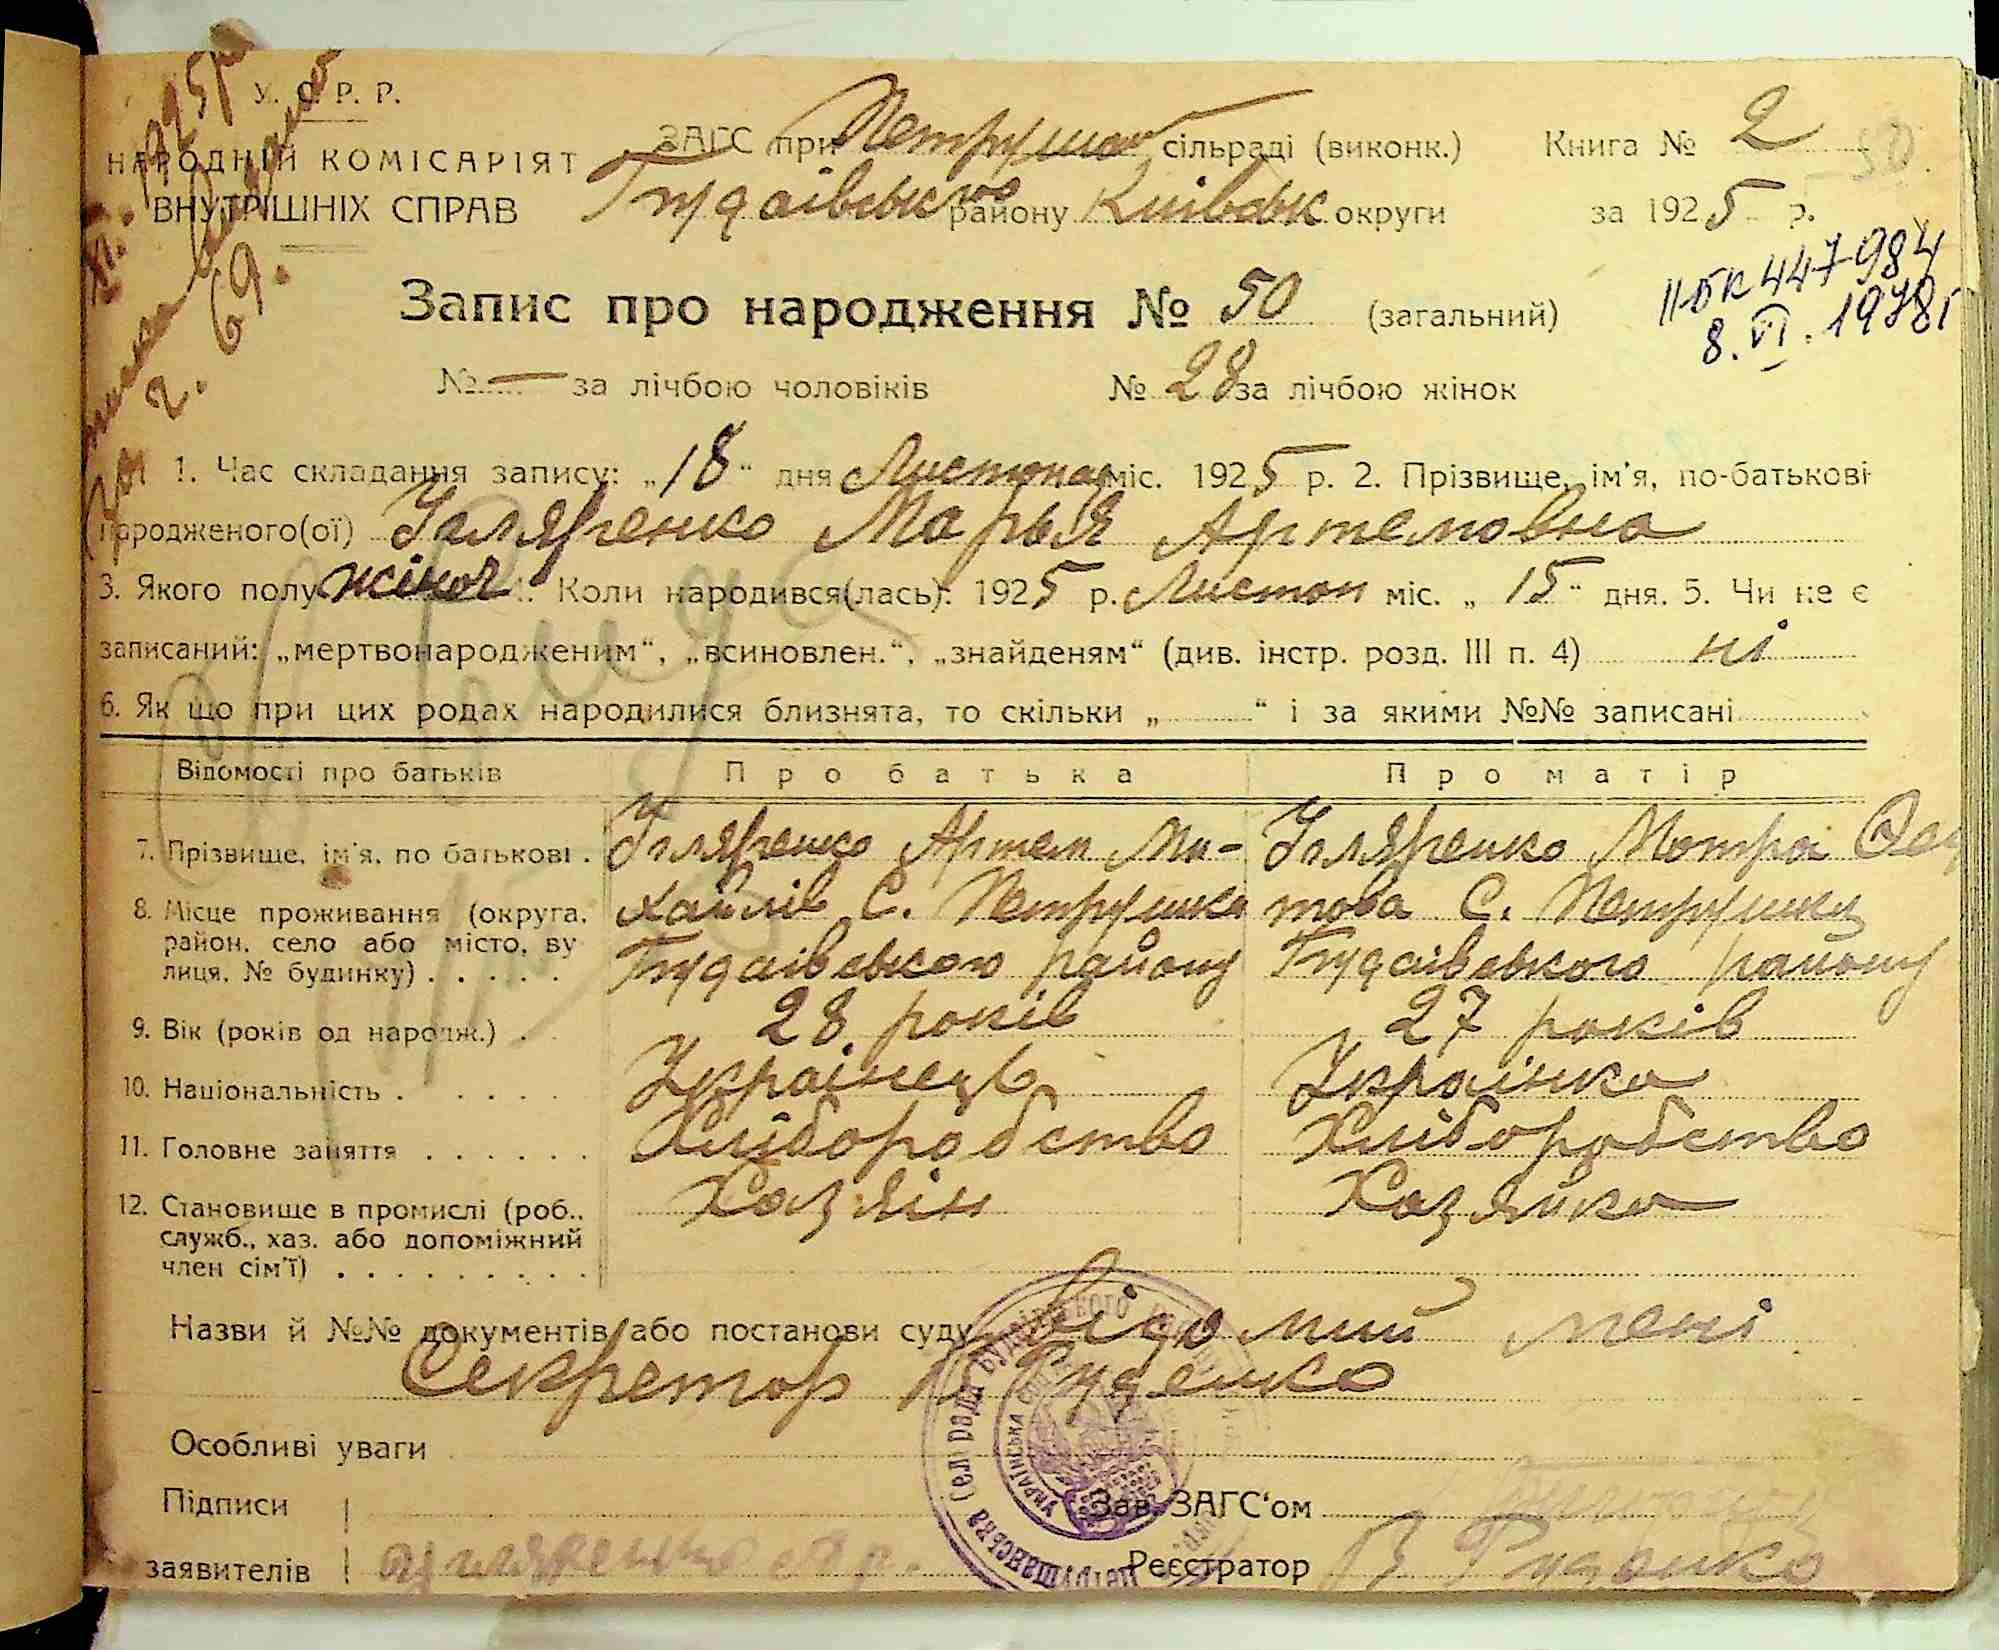 У. С. Р. Р.
НАРОДНІЙ КОМІСАРІЯТ
ВНУТРІШНІХ СПРАВ
ЗАГС при Петрушк сільраді (виконк.)
Будаівського району Київськ округи
Книга № 2
50
за 1925 р.
II-БК 447984
8. VI. 1978 г
Запис про народження № 50 (загальний)
№ — за лічбою чоловіків № 28 за лічбою жінок
1. Час складання запису: „18“ дня Листопад міс. 1925 р. 2. Прізвище, ім'я, по-батькові
народженого(ої) Марья Артемовна
3. Якого полу жіноч 4. Коли народився(лась): 1925 р. Листоп міс. „15“ дня. 5. Чи не є
записаний: „мертвонародженим“, „всиновлен.“, „знайденям“ (див. інстр. розд. III п. 4) ні
6. Як що при цих родах народилися близнята, то скільки „ “ і за якими №№ записані
Відомості про батьків Про батька Про матір
7. Прізвище, ім'я, по батькові . Артем Ми- Мотра
8. Місце проживання (округа, хайлів С. Петрушка това С. Петрушки
район, село або місто, ву
лиця, № будинку) . . . . . Будаівського району Будаівського району
9. Вік (років од народж.) . . 28 років 27 років
10. Національність . . . . . Українець Українка
11. Головне заняття . . . . . . Хліборобство Хліборобство
12. Становище в промислі (роб., Хазяін Хазяйка
служб., хаз. або допоміжний
член сім'ї) . . . . . . . . .
Назви й №№ документів або постанови суду відомий мені
Секретар В Руденко
Особливі уваги
Підписи Зав. ЗАГС'ом
заявителів Реєстратор В Руденко